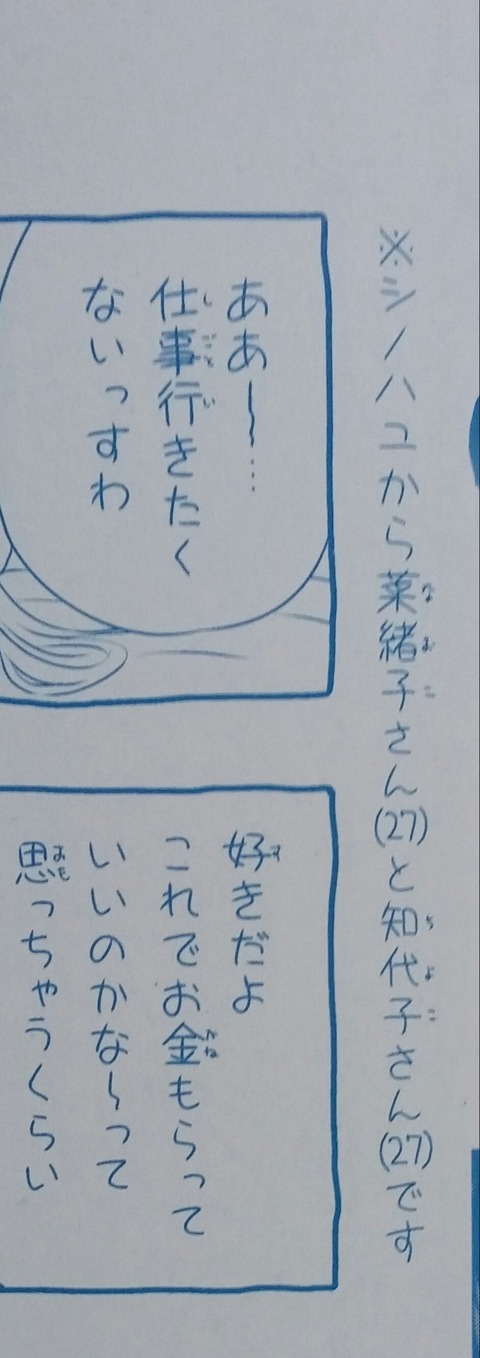 ※シノハユから菜緒子さん(27)と知代子さん(27)です
ああ〜…
仕事行きたく
ないっすわ
好きだよ
これでお金もらって
いいのかな〜って
思っちゃうくらい